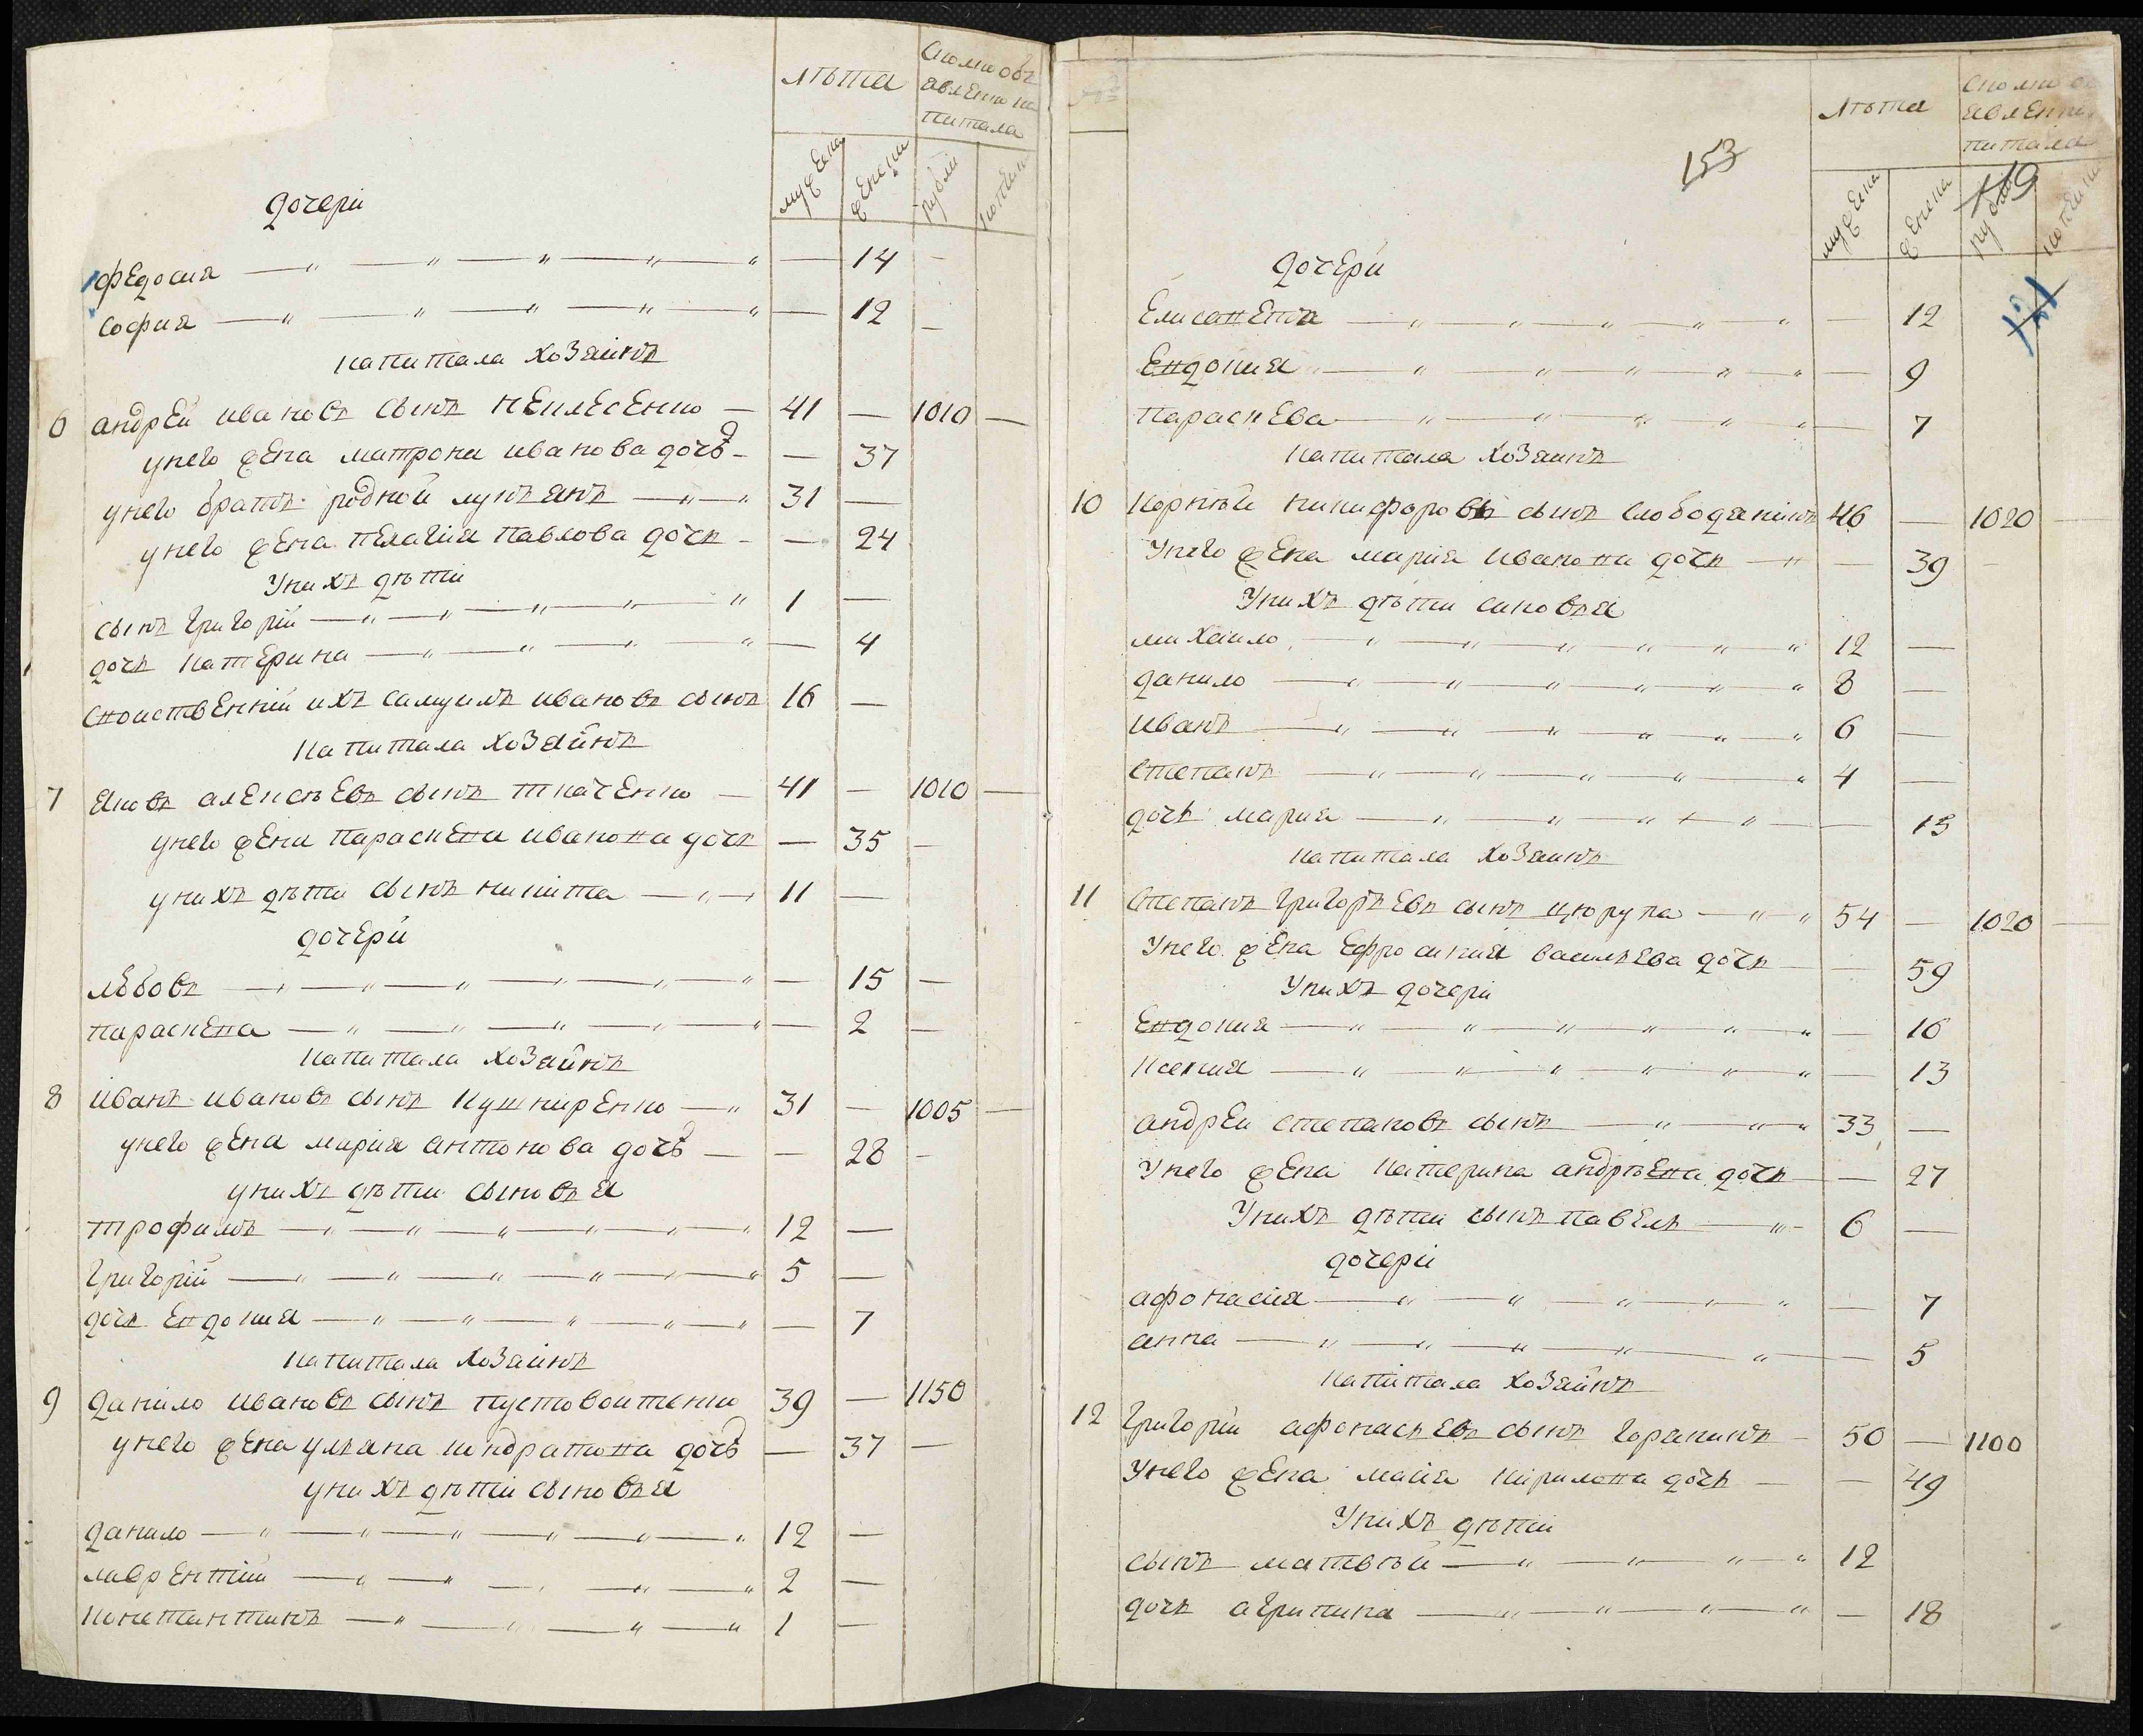 лѣта
Сколко объ
явленно ка
питала
мужеска
женски
рубли
копѣики
дочеріи
Федосия — 14
София — 12
капитала хозяинъ
6 андрей ивановъ сынъ — 41 — 1010 —
унего жена матрона иванова дочъ — 37
унего братъ родной лукъянъ — 31 —
унего жена пелагія павлова дочь — 24
Унихъ дѣти
сынъ григорій — 1 —
дочь катерина — 4
Своиственній ихъ самуилъ ивановъ сынъ 16 —
капитала хозяйнъ
7 яковъ алексѣевъ сынъ ткаченко — 41 — 1010 —
унего жена параскева иванова дочь — 35 —
унихъ дѣти сынъ никита — 11 —
дочерй
лѣбовъ — 15 —
параскева — 2 —
капитала хозяйнъ
8 иванъ ивановъ сынъ кушниренко — 31 — 1005 —
унего жена мария антонова дочъ — 28 —
унихъ дѣти сыновъя
трофимъ — 12 —
григорій — 5 —
дочь евдокия — 7
капитала хозяинъ
9 данило ивановъ сынъ пустовоитенко 39 — 1150
унего жена улѣяна кондратова дочъ — 37 —
унихъ дѣтіи сыновъя
данило — 12 —
лаврентіи — 2 —
константинъ — 1 —
№
153
лѣта
Сколко об
явленно
питала
мужеска
женска
рубли
копѣики
119
121
дочерй
Елисавета — 12
Евдокия — 9
параскева — 7
капитала хозяинъ
10 корнѣй никифоровъ сынъ слободянікъ 46 — 1020 —
Унего жена мария ивановна дочь — 39 —
Унихъ дѣти синовъя
михаило — 12 —
данило — 8 —
иванъ — 6 —
степанъ — 4 —
дочь мария — 15
капитала хозяинъ
11 степанъ григоръевъ сынъ цюрупа — 54 — 1020 —
Унего жена ефросиния василъева дочь — 59
Унихъ дочеріи
Евдокия — 16
Ксения — 13
андреи степановъ сынъ — 33 —
Унего жена катерина андрѣева дочь — 27
Унихъ дѣти сынъ павелъ — 6 —
дочеріи
афонасия — 7
анна — 5
капитала хозяйнъ
12 григоріи афонасьевъ сынъ — 50 — 1100
Унего жена кирилова дочь — 49
Унихъ дѣтіи
сынъ матвѣй — 12
дочь агрипина — 18